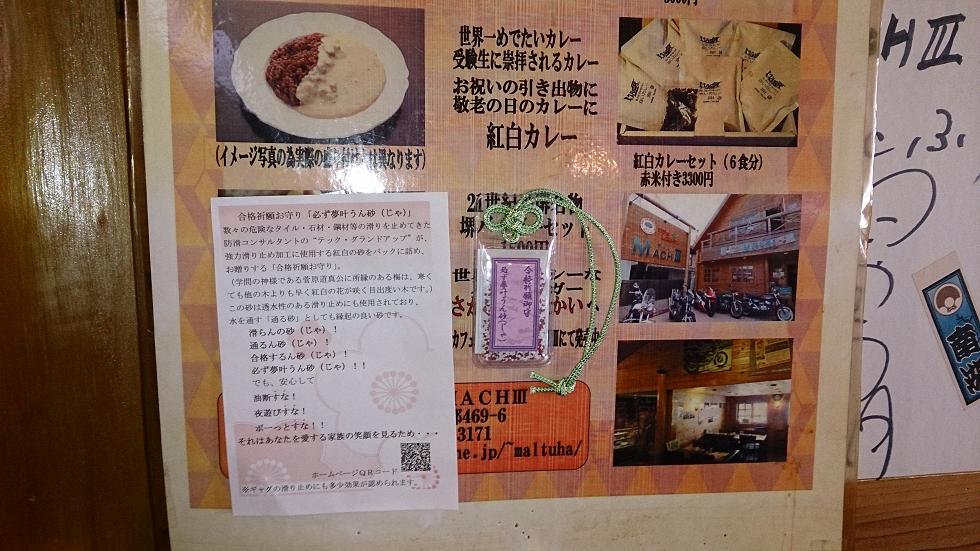 世界一めでたいカレー
受験生に崇拝されるカレー
お祝いの引き出物に
敬老の日のカレーに
紅白カレー
紅白カレーセット（６食分）
赤米付き3300円
MACHⅢ
469-6
3171
ne.jp/~maltuha/
合格祈願お守り「必ず夢叶うん砂（じゃ）」
数々の危険なタイル・石材・鋼材等の滑りを止めてきた
防滑コンサルタントの“テック・グランドアップ”が、
強力滑り止め加工に使用する紅白の砂をパックに詰め、
お贈りする「合格祈願お守り」。
（学問の神様である菅原道真公に所縁のある梅は、寒く
ても他の木よりも早く紅白の花が咲く目出度い木です。）
この砂は透水性のある滑り止めにも使用されており、
水を通す「通る砂」としても縁起の良い砂です。
滑らんの砂（じゃ）！
通るん砂（じゃ）！
合格するん砂（じゃ）！
必ず夢叶うん砂（じゃ）！！
でも、安心して
油断すな！
夜遊びすな！
ボーっとすな！！
それはあなたを愛する家族の笑顔を見るため・・・
ホームページＱＲコード
※ギャグの滑り止めにも多少効果が認められます。
合格祈願御守
必ず夢叶うん砂（じゃ）
MACHⅢ
HⅢ